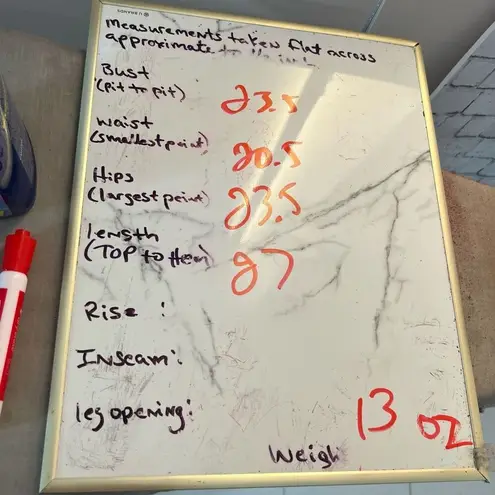 Measurements taken flat across
approximate
Bust
(pit to pit)
23.5
Waist
(smallest point)
20.5
Hips
(largest point)
23.5
length
(TOP to Hem)
27
Rise :
Inseam:
leg opening:
13 oz
Weigh